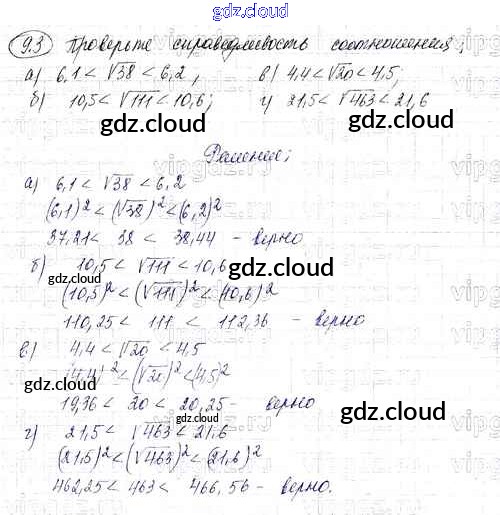 gdz.cloud
9.3 Проверьте справедливость соотношения:
а) 6,1 < √38 < 6,2; в) 4,4 < √20 < 4,5;
б) 10,5 < √111 < 10,6; г) 21,5 < √463 < 21,6
gdz.cloud gdz.cloud
Решение;
а) 6,1 < √38 < 6,2
(6,1)² < (√38)² < (6,2)²
gdz.cloud
37,21 < 38 < 38,44 - верно
б) 10,5 < √111 < 10,6
gdz.cloud
gdz.cloud
(10,5)² < (√111)² < (10,6)²
110,25 < 111 < 112,36 - верно
в) 4,4 < √20 < 4,5
(4,4)² < (√20)² < (4,5)²
gdz.cloud
19,36 < 20 < 20,25 - верно
gdz.cloud
г) 21,5 < √463 < 21,6
(21,5)² < (√463)² < (21,6)²
gdz.cloud
462,25 < 463 < 466,56 - верно.